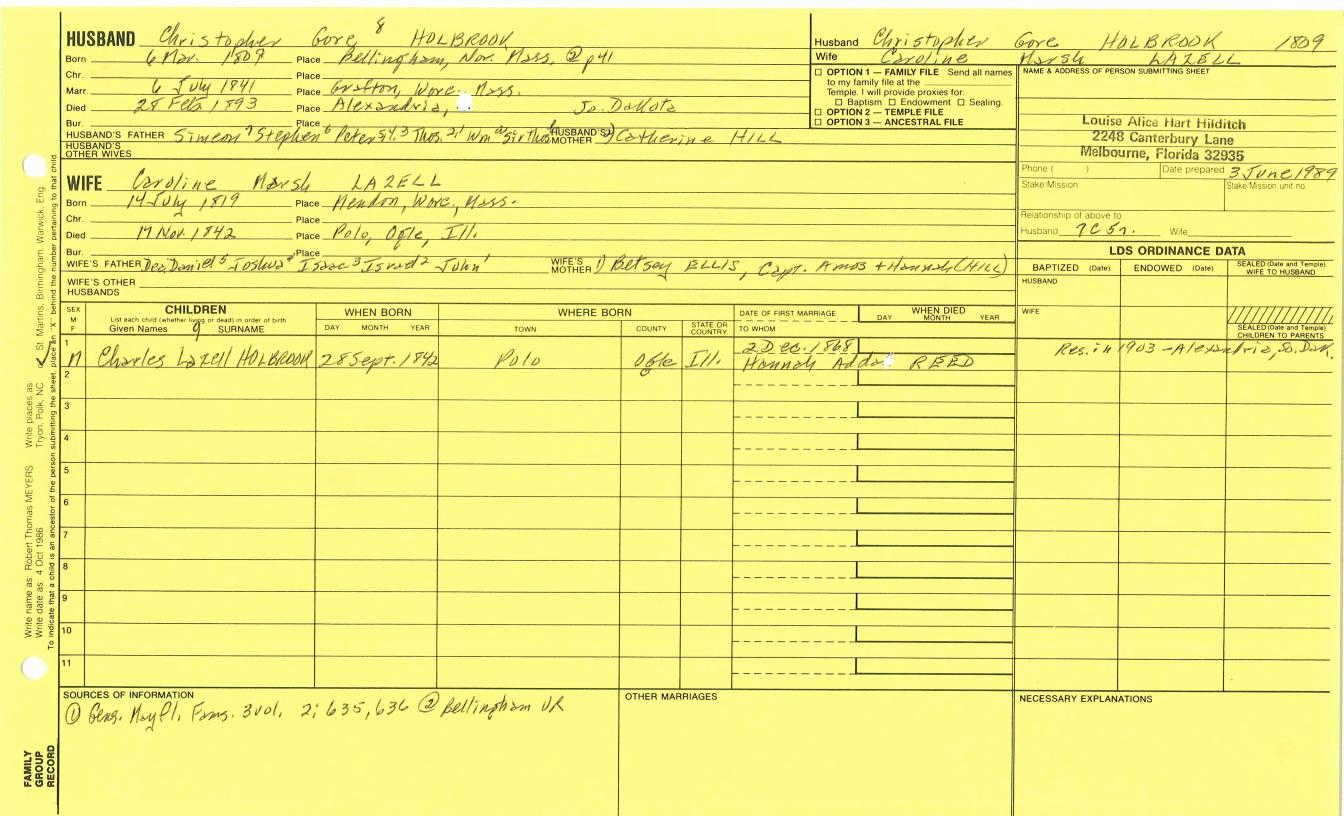 HUSBAND Christopher Gore 8 HOLBROOK
Born 6 Mar. 1809 Place Bellingham, Nor. Mass. ② p41
Chr. Place
Marr. 6 July 1841 Place Grafton, Worc. Mass.
Died 28 Feb 1893 Place Alexandria, So. Dakota
Bur. Place
HUSBAND'S FATHER Simeon 7 Stephen 6 Peter 5,4,3 Thos. 2,1 Wm HUSBAND'S MOTHER Catherine HILL
HUSBAND'S OTHER WIVES
Husband Christopher Gore HOLBROOK 1809
Wife Caroline Marsh LAZELL
☐ OPTION 1 — FAMILY FILE Send all names
to my family file at the
Temple. I will provide proxies for:
☐ Baptism ☐ Endowment ☐ Sealing.
☐ OPTION 2 — TEMPLE FILE
☐ OPTION 3 — ANCESTRAL FILE
NAME & ADDRESS OF PERSON SUBMITTING SHEET
Louise Alice Hart Hilditch
2248 Canterbury Lane
Melbourne, Florida 32935
Phone ( ) Date prepared 3 June 1989
Stake Mission Stake Mission unit no.
Relationship of above to
Husband 7C5r. Wife
WIFE Caroline Marsh LAZELL
Born 14 July 1819 Place Mendon, Worc., Mass.
Chr. Place
Died 17 Nov. 1842 Place Polo, Ogle, Ill.
Bur. Place
WIFE'S FATHER Dea. Daniel 5 Joshua 4 Isaac 3 Israel 2 John 1 WIFE'S MOTHER 1) Betsey ELLIS, Capt. Amos + Hannah (HILL)
WIFE'S OTHER HUSBANDS
LDS ORDINANCE DATA
BAPTIZED (Date) ENDOWED (Date) SEALED (Date and Temple) WIFE TO HUSBAND
HUSBAND
WIFE
SEALED (Date and Temple) CHILDREN TO PARENTS
SEX M F
CHILDREN
List each child (whether living or dead) in order of birth
Given Names 9 SURNAME
WHEN BORN
DAY MONTH YEAR
WHERE BORN
TOWN COUNTY STATE OR COUNTRY
DATE OF FIRST MARRIAGE
TO WHOM
WHEN DIED
DAY MONTH YEAR
1 M Charles Lazell HOLBROOK 28 Sept. 1842 Polo Ogle Ill. 2 Dec. 1868 Res. in 1903 - Alexandria, So. Dak.
Hannah Adda REED
2
3
4
5
6
7
8
9
10
11
SOURCES OF INFORMATION
① Geng. Mayfl. Fams. 3 vol. 2; 635, 636 ② Bellingham VR
OTHER MARRIAGES
NECESSARY EXPLANATIONS
Write name as: Robert Thomas MEYERS Write places as: Tryon, Polk, NC or St. Martins, Birmingham, Warwick, Eng.
Write date as: 4 Oct 1986
To indicate that a child is an ancestor of the person submitting the sheet, place an "X" behind the number pertaining to that child.
FAMILY
GROUP
RECORD